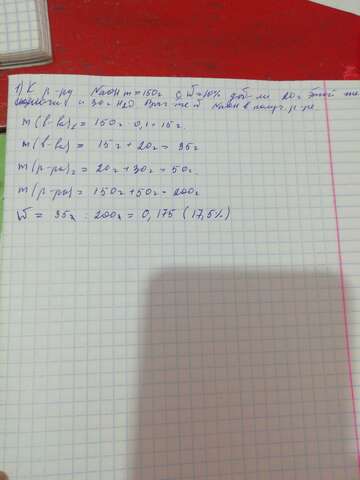 1) К р-ру NaOH m = 150г с W = 10% доб-ли 20г этой же
щелочи и 30г H2O. Выч-те W NaOH в получ. р-ре.
m (в-ва)1 = 150г · 0,1 = 15г.
m (в-ва) = 15г + 20г = 35г
m (р-ра)2 = 20г + 30г = 50г.
m (р-ра) = 150г + 50г = 200г
W = 35г : 200г = 0,175 (17,5%)